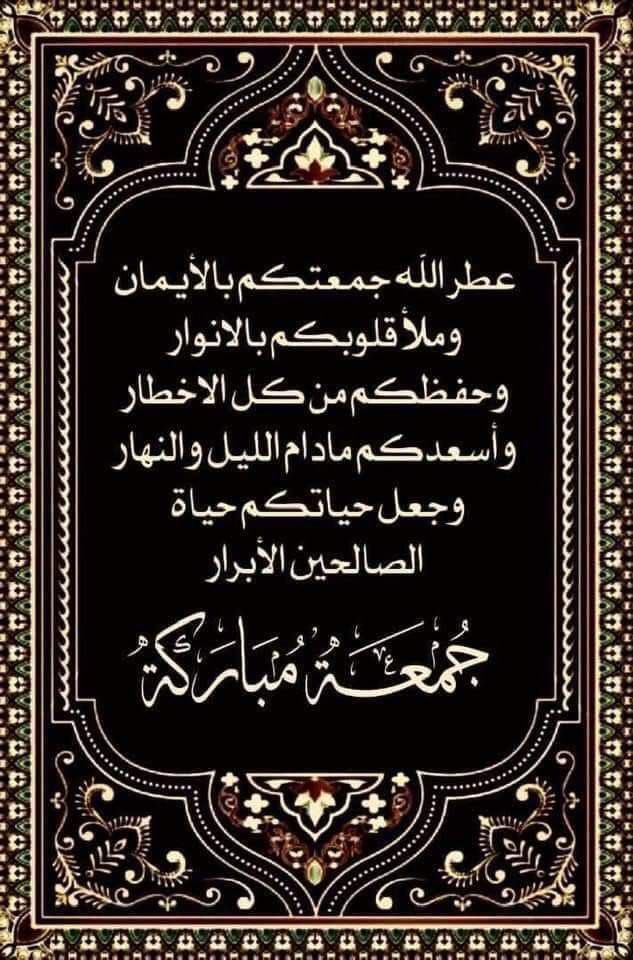 عطر الله جمعتكم بالأيمان
وملأ قلوبكم بالانوار
وحفظكم من كل الاخطار
وأسعدكم مادام الليل والنهار
وجعل حياتكم حياة
الصالحين الأبرار
جُمْعَةٌ مُبَارَكَةٌ